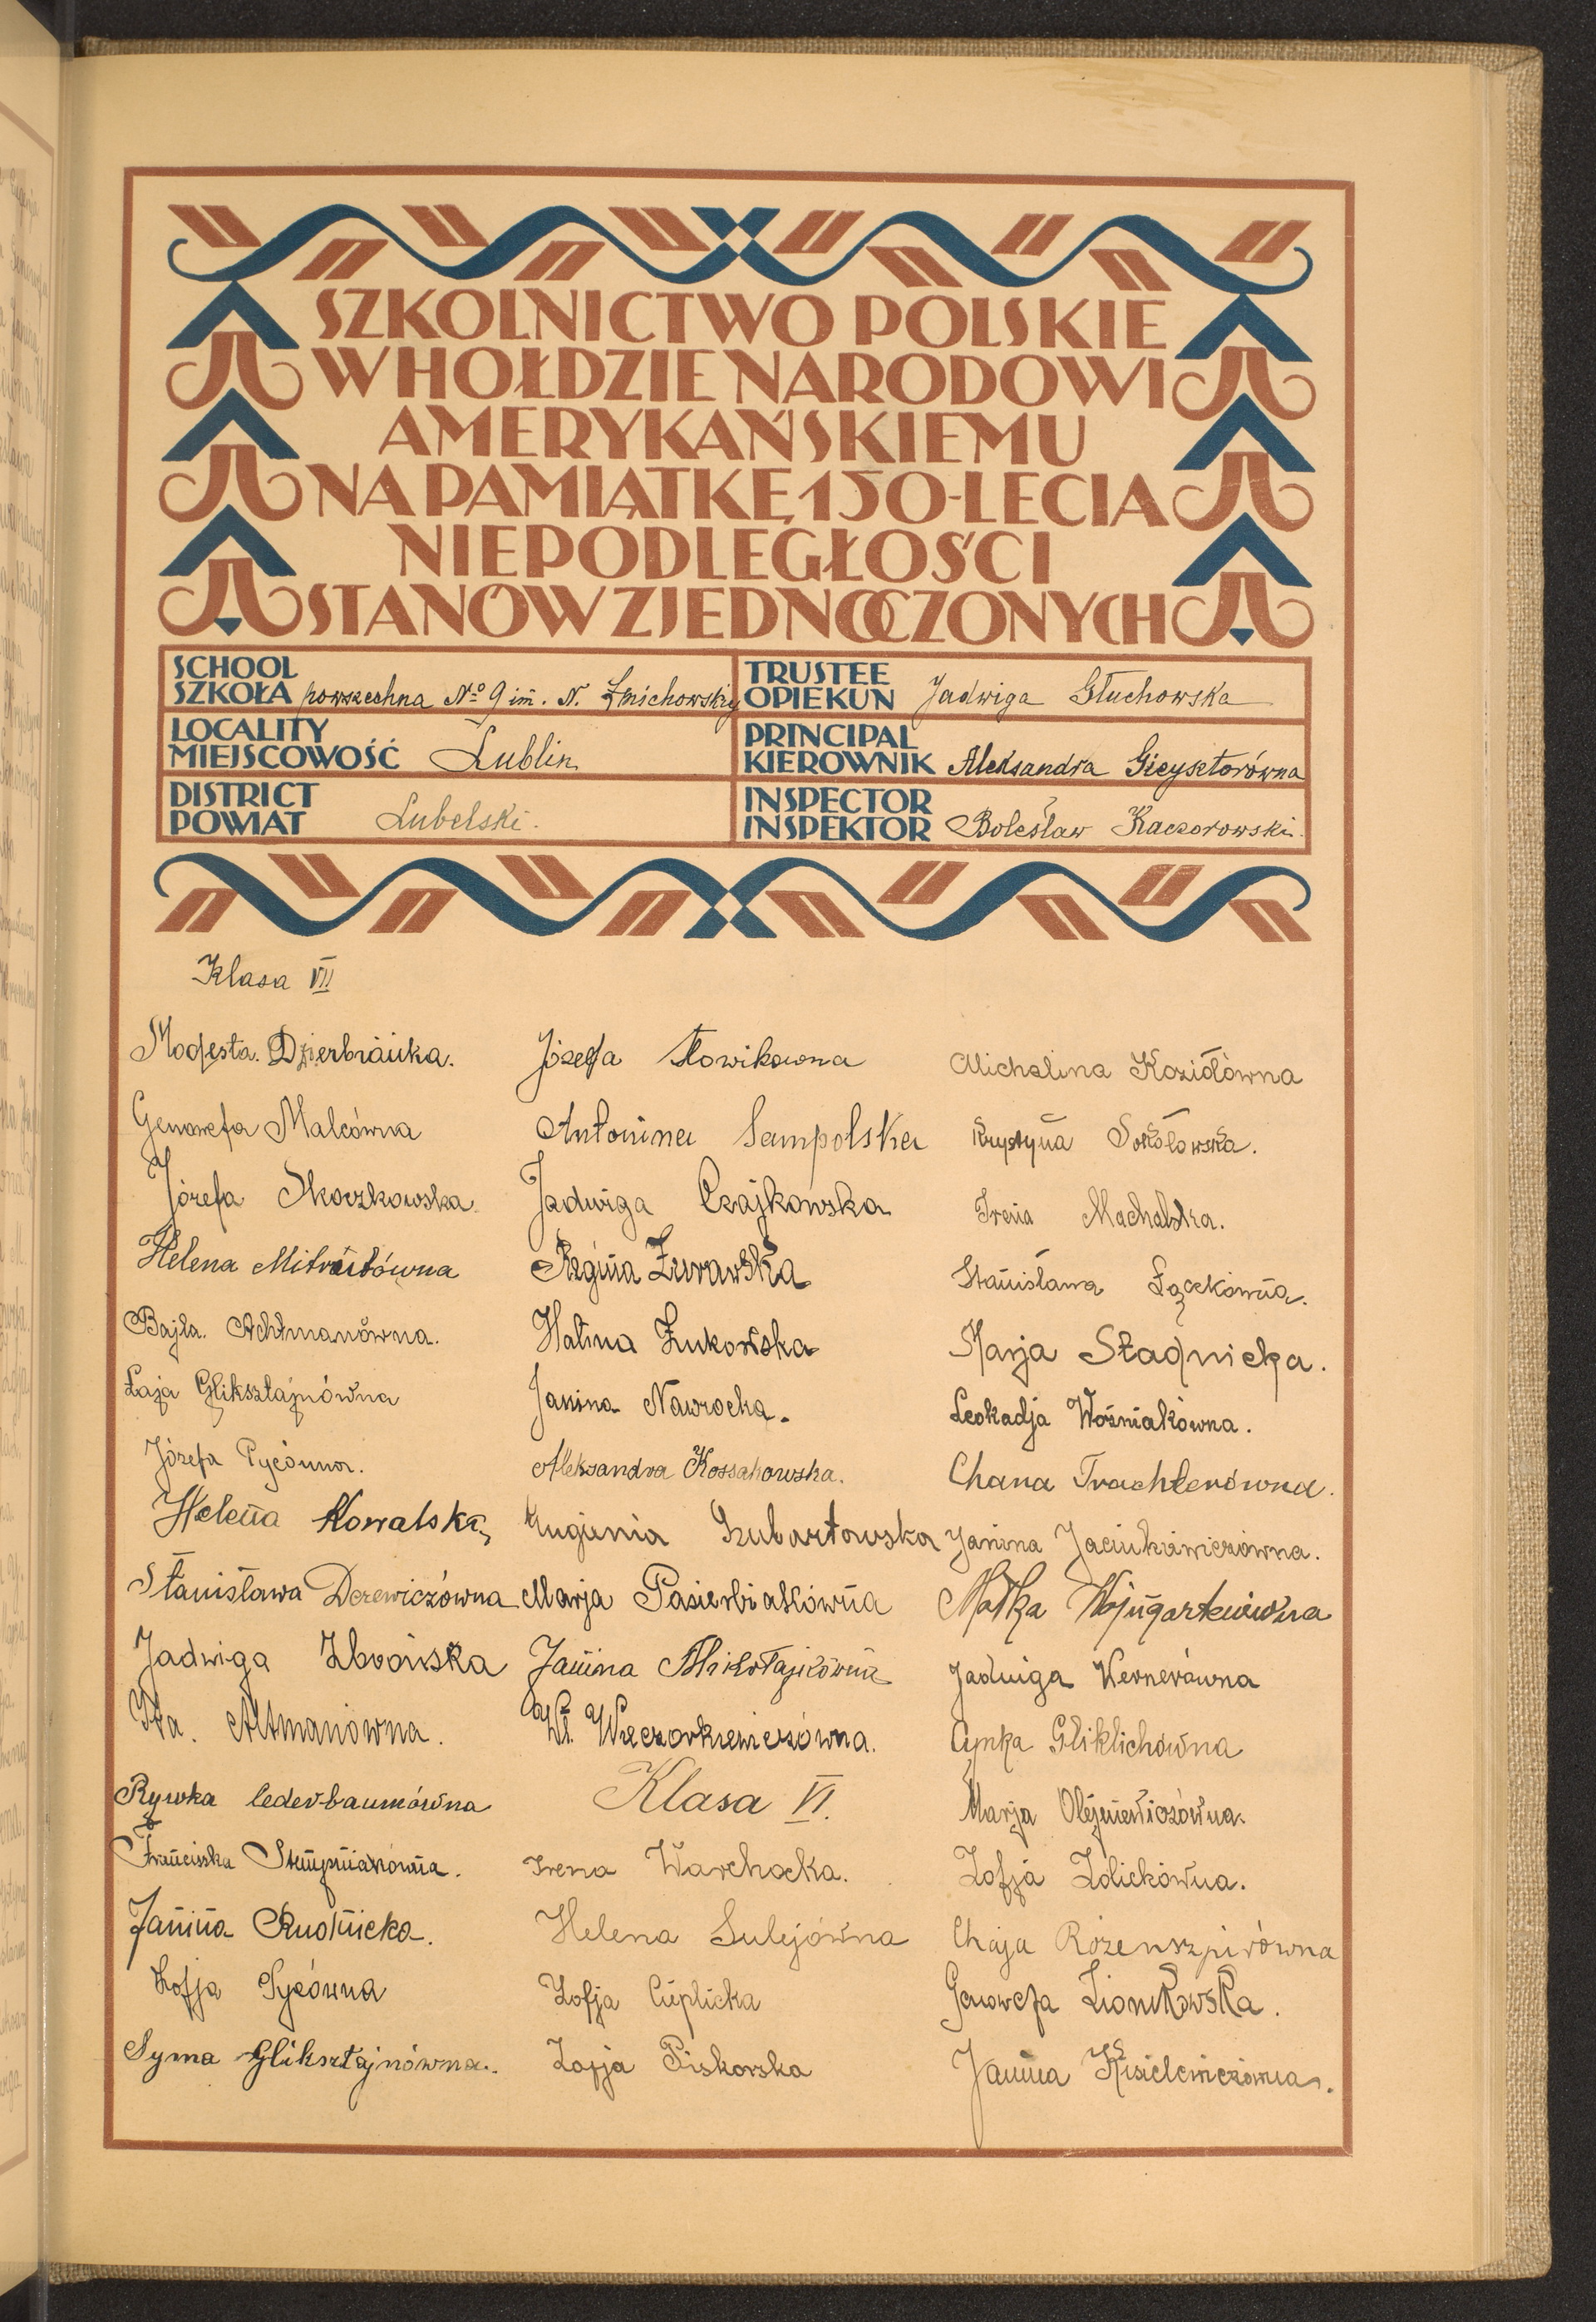 SZKOLNICTWO POLSKIE
W HOŁDZIE NARODOWI
AMERYKAŃSKIEMU
NA PAMIĄTKĘ 150-LECIA
NIEPODLEGŁOŚCI
STANÓW ZJEDNOCZONYCH
SCHOOL
SZKOŁA powszechna № 9 im. N. Żmichowskiej
TRUSTEE
OPIEKUN Jadwiga Głuchowska
LOCALITY
MIEJSCOWOŚĆ Lublin
PRINCIPAL
KIEROWNIK Aleksandra Gieysztorówna
DISTRICT
POWIAT Lubelski.
INSPECTOR
INSPEKTOR Bolesław Kaczorowski.
Klasa VII
Modesta.
Genowefa Malcówna
Józefa Skoczkowska
Helena
Bajla. Achtmanówna.
Łaja Gliksztajnówna
Józefa Pycówna.
Helena Kowalska
Stanisława Derewiczówna
Jadwiga Zbroińska
Ita. Altmanówna.
Rywka lederbaumówna
Franciszka Stempniakówna.
Janina Rudnicka.
Zofja Pycówna
Syma Gliksztajnówna.
Józefa Słowikowna
Antonina Sampolska
Jadwiga Czajkowska
Regina Żurawska
Halina Żukowska
Janina Nawrocka.
Aleksandra Kossakowska.
Eugenia Szubartowska
Marja Pasierbiakówna
Janina Mikołajkówna
Wł. Wieczorkiewiczówna.
Klasa VI.
Irena Warchocka.
Helena Sulejówna
Zofja Cieplicka
Zofja Piskorska
Michalina Koziołówna
Krystyna Sokołowska.
Irena Machalska.
Stanisława Łączkówna.
Marja Stadnicka.
Leokadja Woźniakówna.
Chana Trachterówna.
Janina Jaciukiewiczówna.
Małka
Jadwiga Wernerówna
Cypka Gliklichówna
Marja Olejniewiczówna.
Zofja Zdlickówna.
Chaja Rozenszpirówna
Genowefa Zionkowska.
Janina Kisielewiczówna.